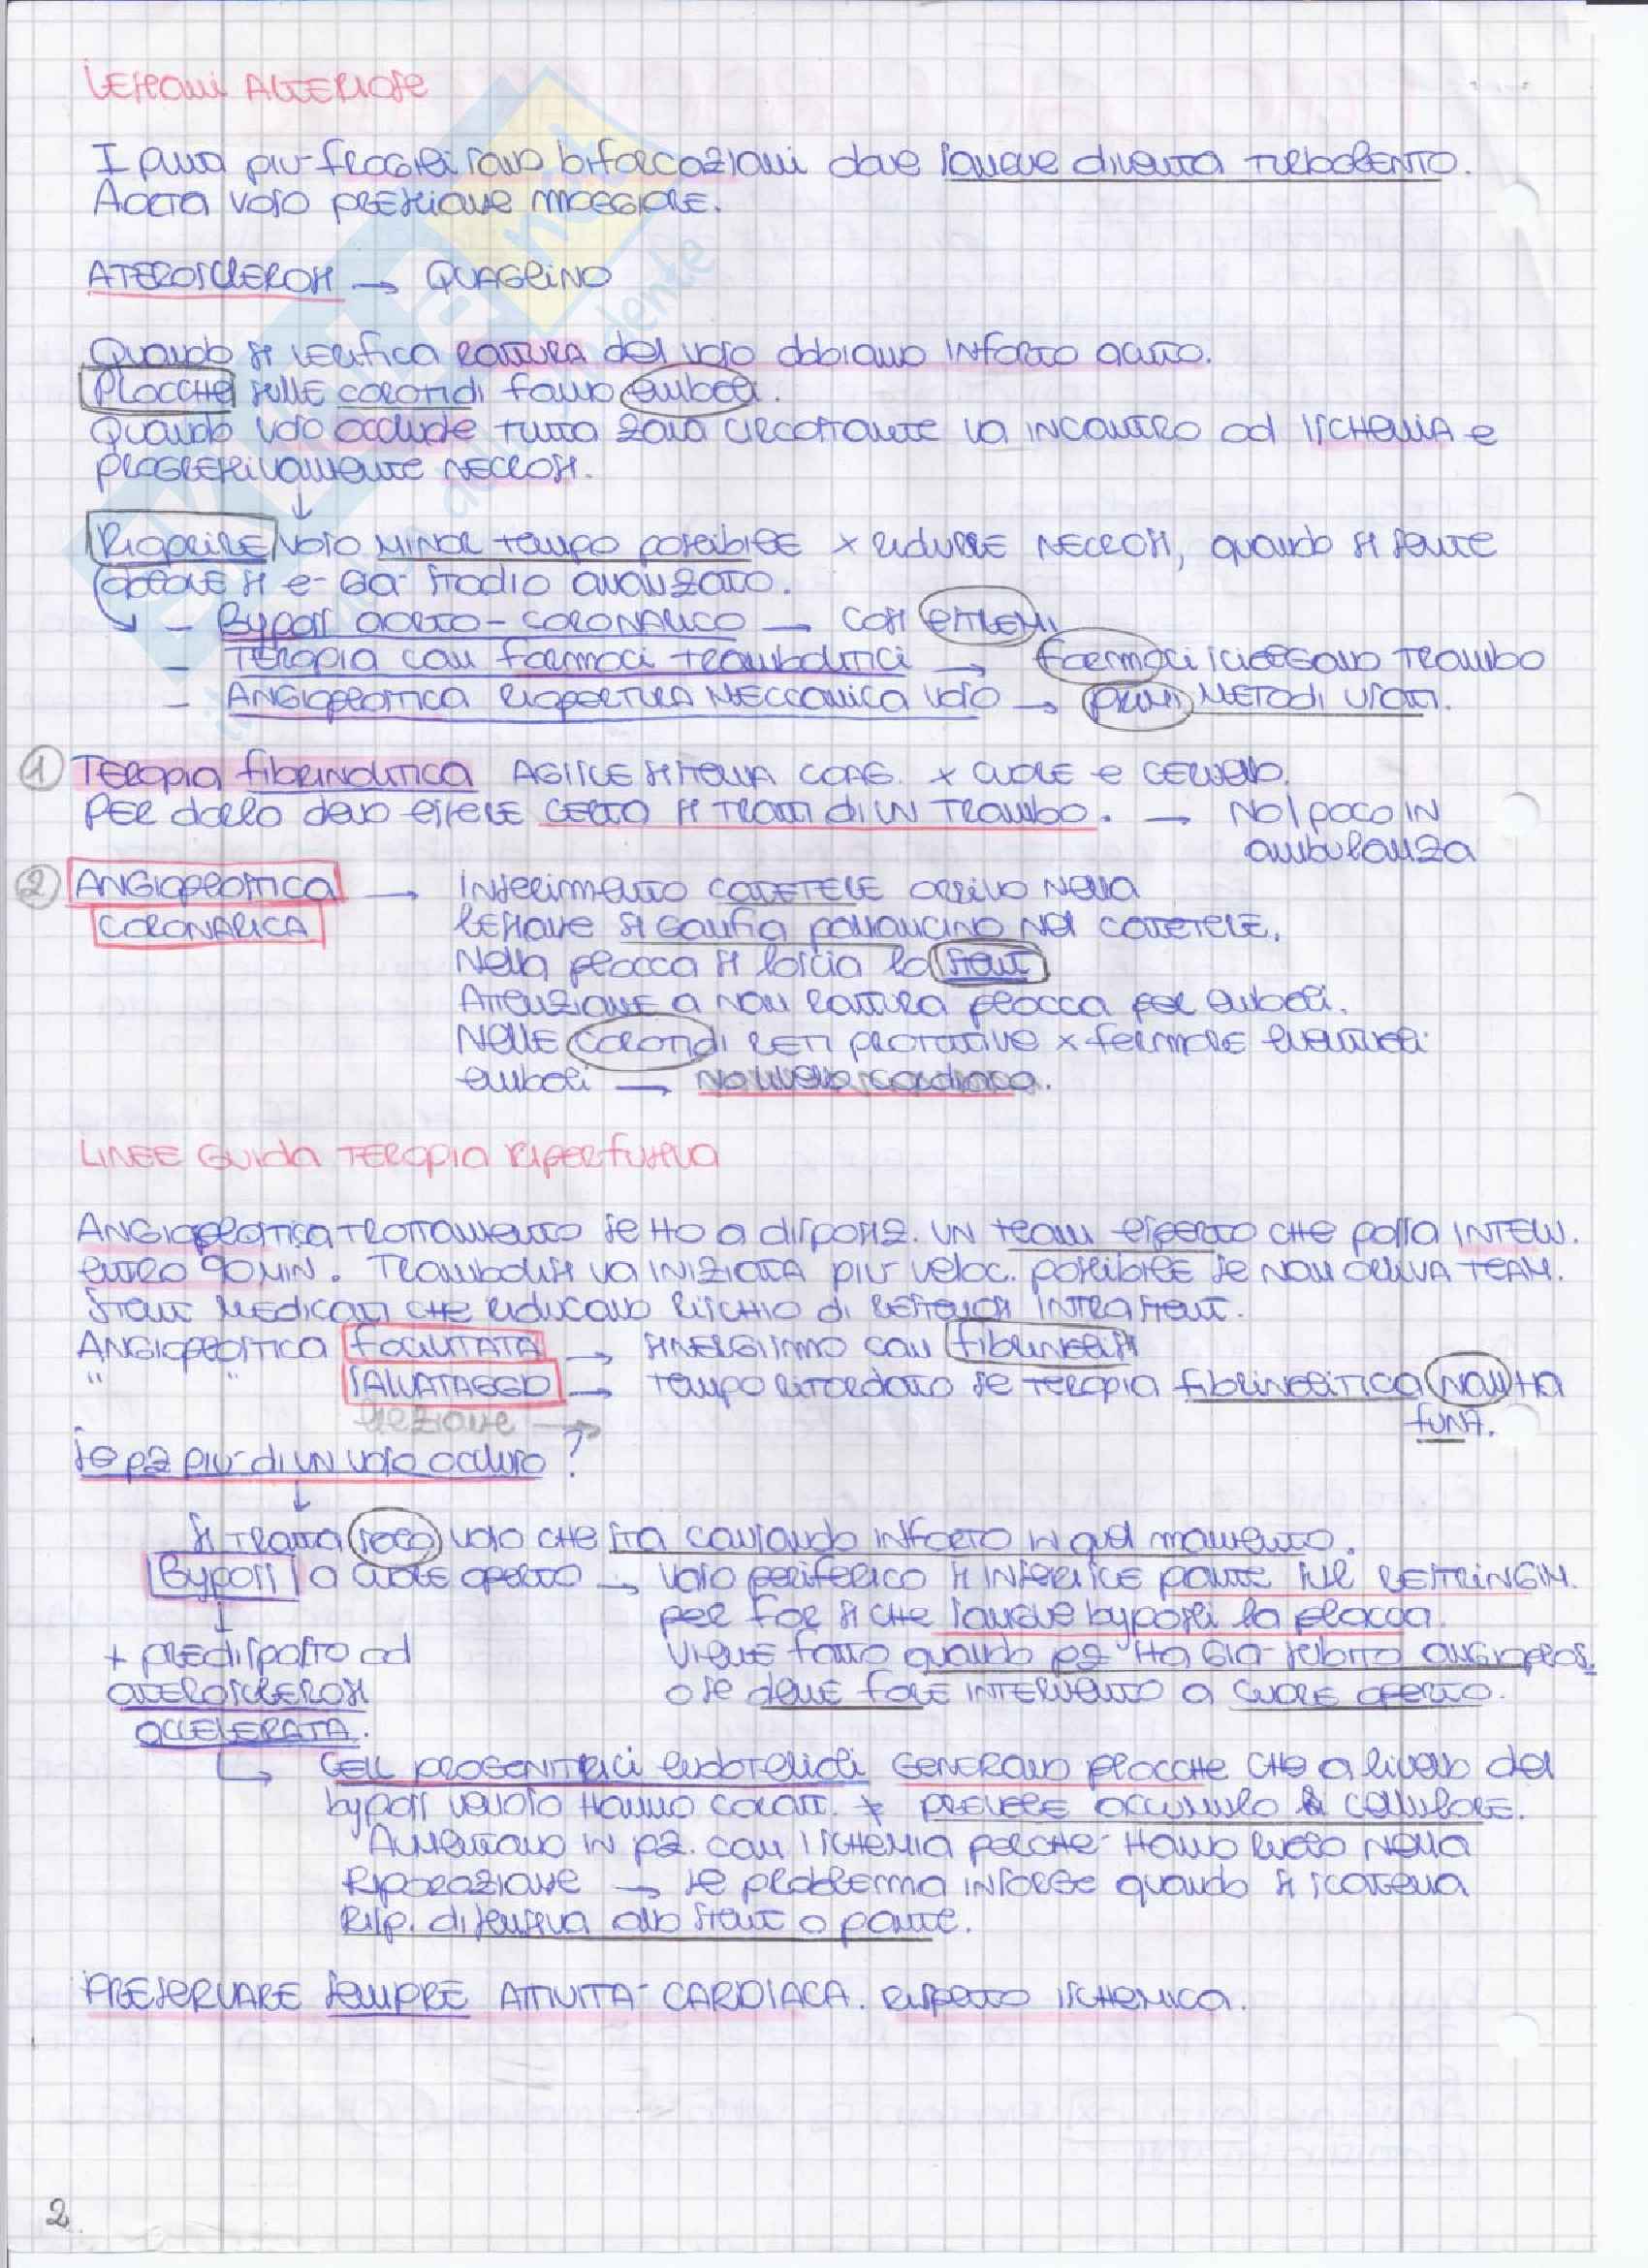 LESIONI ARTERIOSE
I punti più fragili sono biforcazioni dove sangue diventa TURBOLENTO.
AORTA vaso PRESSIONE MAGGIORE.
ATEROSCLEROSI → QUAGLINO
Quando si verifica ROTTURA del vaso abbiamo INFARTO acuto.
PLACCHE sulle carotidi fanno emboli.
Quando vaso occlude tutta zona circostante va incontro ad ISCHEMIA e
PROGRESSIVAMENTE NECROSI.
↓
RIAPRIRE vaso MINOR tempo possibile x RIDURRE NECROSI, quando si sente
dolore si è già stadio avanzato.
- Bypass aorto-CORONARICO → casi ESTREMI
- TERAPIA con farmaci trombolitici → farmaci sciolgono trombo
- ANGIOPLASTICA RIAPERTURA MECCANICA vaso → primi METODI USATI.
① TERAPIA fibrinolitica AGISCE SISTEMA COAG. x cuore e cervello.
PER darlo devo essere CERTO si tratti di un trombo. → NO / poco IN
ambulanza
② ANGIOPLASTICA → INSERIMENTO CATETERE arrivo nella
CORONARICA lesione si gonfia palloncino nel CATETERE.
Nella placca si lascia lo stent
Attenzione a non rottura placca per emboli.
NELLE carotidi reti protettive x fermare eventuali
emboli → no nella cardiaca.
LINEE GUIDA TERAPIA RIPERFUSIVA
ANGIOPLASTICA trattamento se ho a disposiz. UN team esperto che possa INTERV.
entro 90 MIN. Trombolisi va INIZIATA più veloc. possibile se non arriva TEAM.
Stent MEDICATI che riducono RISCHIO di restenosi INTRASTENT.
ANGIOPLASTICA FACILITATA → SINERGISMO con fibrinolisi
" " SALVATAGGIO → tempo ritardato se terapia fibrinolitica non ha
funz.
ELEZIONE →
Se pz più di un vaso occluso?
↓
Si tratta solo vaso che sta causando infarto in quel momento.
Bypass a cuore aperto → vaso periferico si inserisce ponte sul RESTRINGIM.
↓ per far sì che sangue bypassi la placca.
+ PREDISPOSTO ad Viene fatto quando pz ha già subito angioplas.
ATEROSCLEROSI o se deve fare INTERVENTO a cuore aperto.
ACCELERATA.
↳ CELL PROGENITRICI endoteliali GENERANO placche che a livello del
bypass venoso hanno caratt. x PREVENIRE accumulo cellulare.
Aumentano in pz. con ISCHEMIA perché hanno ruolo nella
RIPARAZIONE → il problema insorge quando si scatena
risp. difensiva allo stent o ponte.
PRESERVARE SEMPRE ATTIVITÀ CARDIACA. Rispetto ISCHEMICA.
2